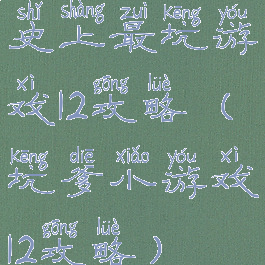 shǐ shàng zuì kēng yóu
史上最坑游
xì gōng lüè
戏12攻略（
kēng diē xiǎo yóu xì
坑爹小游戏
gōng lüè
12攻略）